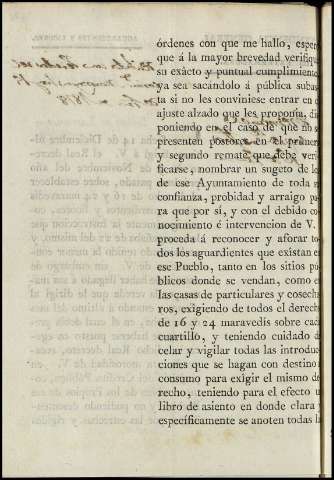 órdenes con que me hallo, espero
que á la mayor brevedad verifique
su exâcto y puntual cumplimiento,
ya sea sacándolo á pública subas-
ta si no les conviniese entrar en el
ajuste alzado que les proponía, dis-
poniendo en el caso de que no se
presenten postores en el primero
y segundo remate que debe veri-
ficarse, nombrar un sugeto de los
de ese Ayuntamiento de toda su
confianza, probidad y arraigo pa-
ra que por sí, y con el debido co-
nocimiento é intervencion de V.
proceda á reconocer y aforar to-
dos los aguardientes que existan en
ese Pueblo, tanto en los sitios pú-
blicos donde se vendan, como en
las casas de particulares y coseche-
ros, exigiendo de todos el derecho
de 16 y 24 maravedis sobre cada
cuartillo, y teniendo cuidado de
celar y vigilar todas las introduc-
ciones que se hagan con destino al
consumo para exigir el mismo de-
recho, teniendo para el efecto un
libro de asiento en donde clara y
específicamente se anoten todas la